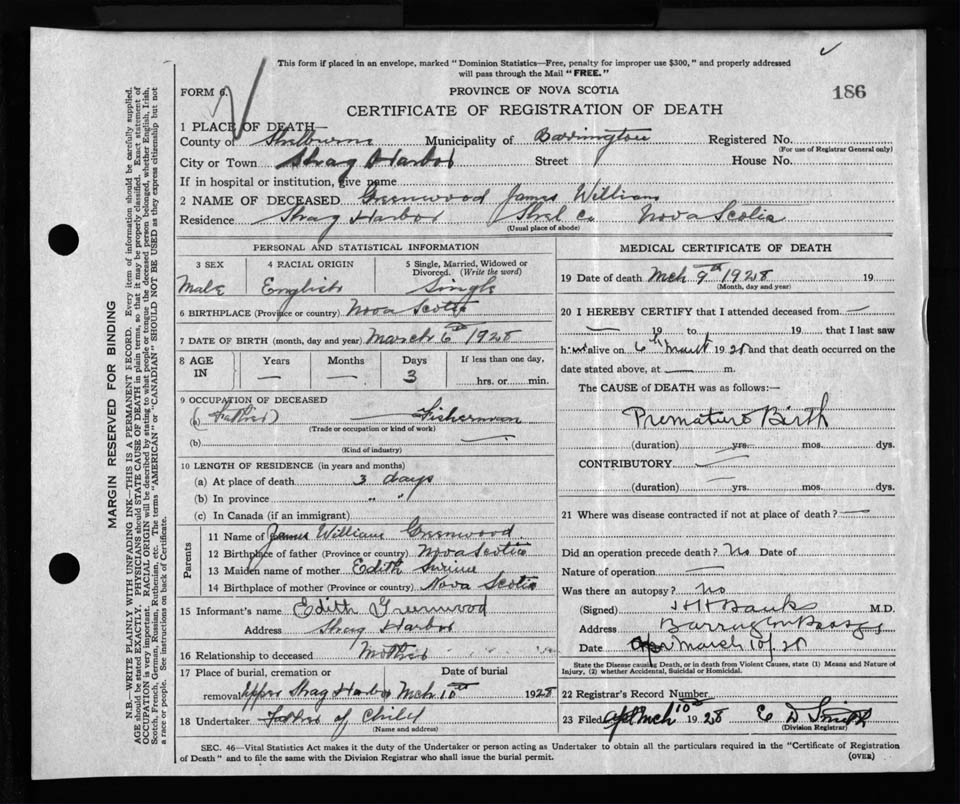 This form if placed in an envelope, marked "Dominion Statistics—Free, penalty for improper use $300," and properly addressed
will pass through the Mail "FREE."
FORM 6.
PROVINCE OF NOVA SCOTIA
186
CERTIFICATE OF REGISTRATION OF DEATH
1 PLACE OF DEATH—
County of Shelburne Municipality of Barrington Registered No.
(For use of Registrar General only)
City or Town Shag Harbor Street House No.
If in hospital or institution, give name
2 NAME OF DECEASED Greenwood James William
Residence Shag Harbor Shel Co Nova Scotia
(Usual place of abode)
PERSONAL AND STATISTICAL INFORMATION
3 SEX 4 RACIAL ORIGIN 5 Single, Married, Widowed or
Divorced. (Write the word)
Male English Single
6 BIRTHPLACE (Province or country) Nova Scotia
7 DATE OF BIRTH (month, day and year) March 6th 1928
8 AGE Years Months Days If less than one day,
IN — — 3 hrs. or min.
9 OCCUPATION OF DECEASED
(a) (Father) Fisherman
(Trade or occupation or kind of work)
(b)
(Kind of industry)
10 LENGTH OF RESIDENCE (in years and months)
(a) At place of death 3 days
(b) In province " "
(c) In Canada (if an immigrant)
Parents
11 Name of James William Greenwood
12 Birthplace of father (Province or country) Nova Scotia
13 Maiden name of mother Edith
14 Birthplace of mother (Province or country) Nova Scotia
15 Informant's name Edith Greenwood
Address Shag Harbor
16 Relationship to deceased Mother
17 Place of burial, cremation or Date of burial
removal Upper Shag Harbor Mch 10th 1928
18 Undertaker Father of Child
(Name and address)
MEDICAL CERTIFICATE OF DEATH
19 Date of death Mch 9th 1928 19
(Month, day and year)
20 I HEREBY CERTIFY that I attended deceased from —
— 19 to 19 — that I last saw
him alive on 6th March 1928 and that death occurred on the
date stated above, at — m.
The CAUSE of DEATH was as follows:—
Premature Birth
(duration) yrs. mos. dys.
CONTRIBUTORY —
(duration) yrs. mos. dys.
21 Where was disease contracted if not at place of death? —
Did an operation precede death? No Date of
Nature of operation —
Was there an autopsy? No
(Signed) H H Banks M.D.
Address Barrington Passage
Date March 10/28
State the Disease causing Death, or in death from Violent Causes, state (1) Means and Nature of
Injury, (2) whether Accidental, Suicidal or Homicidal.
22 Registrar's Record Number
23 Filed Mch 10th 1928 E D Smith
(Division Registrar)
SEC. 46—Vital Statistics Act makes it the duty of the Undertaker or person acting as Undertaker to obtain all the particulars required in the "Certificate of Registration
of Death" and to file the same with the Division Registrar who shall issue the burial permit.
(OVER)
MARGIN RESERVED FOR BINDING
N.B.—WRITE PLAINLY WITH UNFADING INK—THIS IS A PERMANENT RECORD. Every item of information should be carefully supplied.
AGE should be stated EXACTLY. PHYSICIANS should STATE CAUSE OF DEATH in plain terms, so that it may be properly classified. Exact statement of
OCCUPATION is very important. RACIAL ORIGIN will be described by stating to what people or tongue the deceased person belonged, whether English, Irish,
Scotch, French, German, Russian, Ruthenian, etc. The terms "AMERICAN" or "CANADIAN" SHOULD NOT BE USED as they express citizenship but not
a race or people. See instructions on back of Certificate.